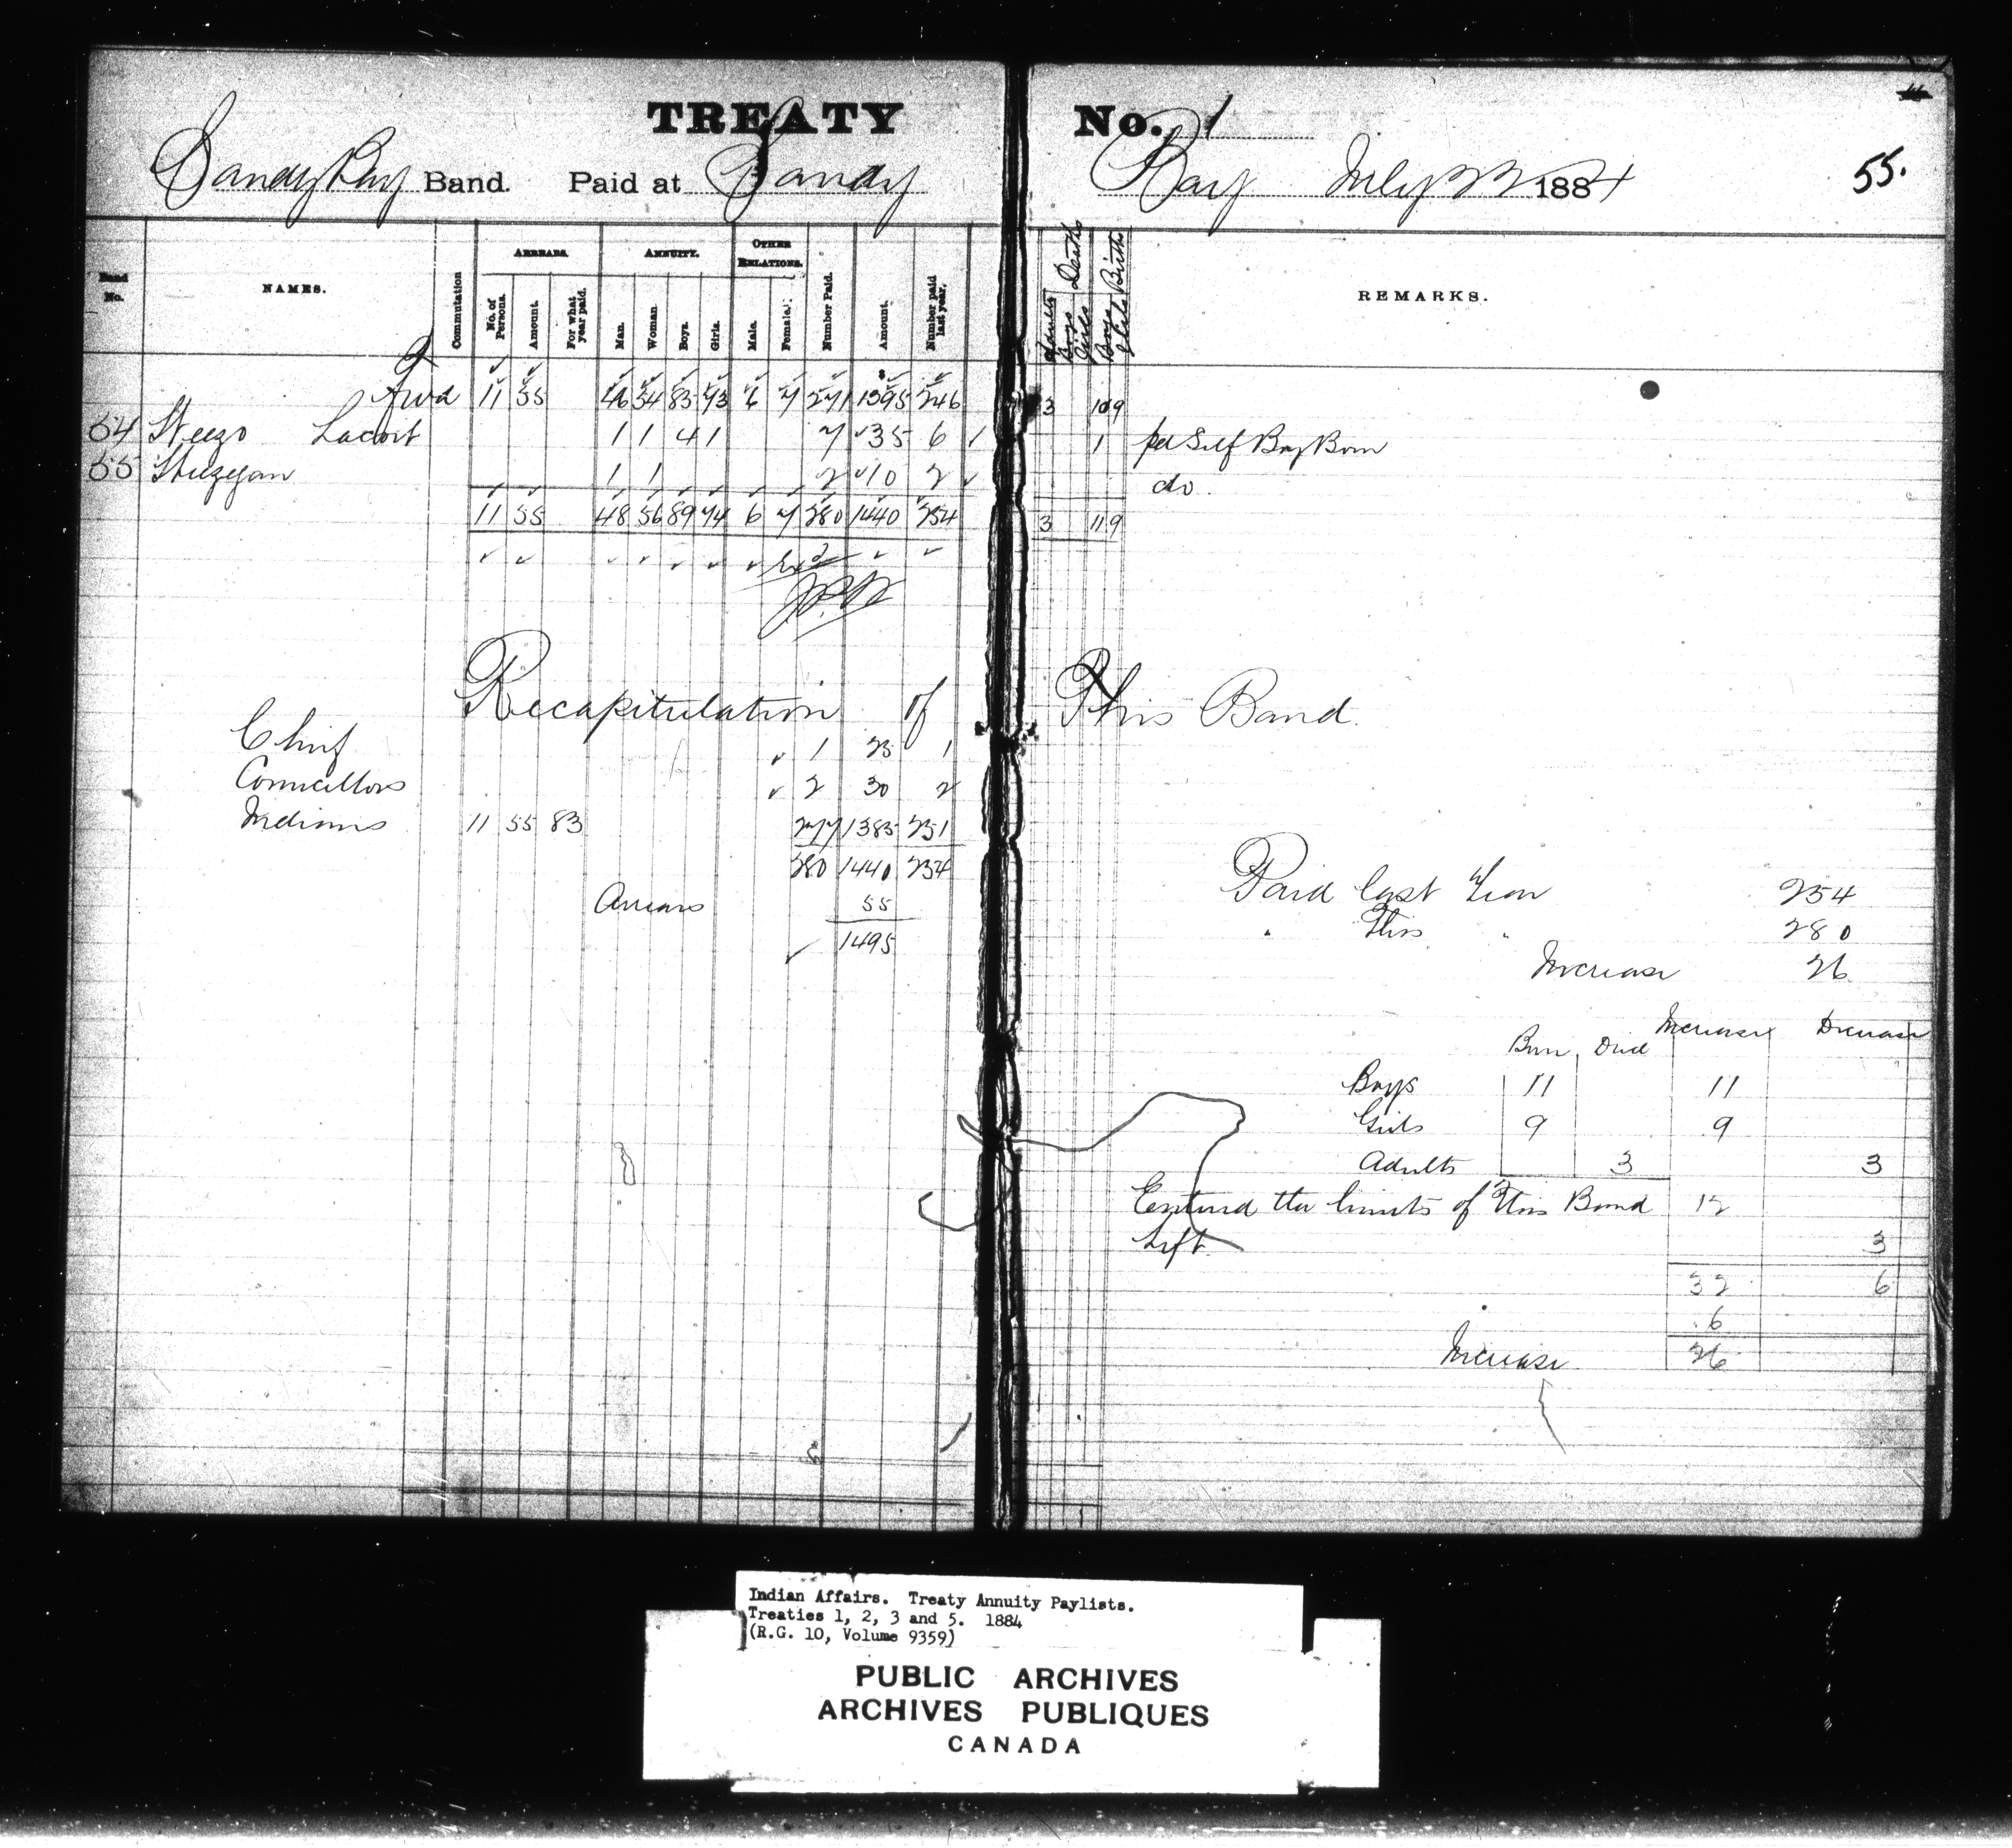 TREATY No. 1
Sandy Bay Band. Paid at Sandy Bay July 23 1884 55.
Band No. NAMES. Commutation ARREARS. No. of Persons. Amount. For what year paid. ANNUITY. Man. Woman Boys. Girls. OTHER RELATIONS. Male. Female. Number Paid. Amount. Number paid last year. Adults Boys Girls Deaths Boys Girls Births REMARKS.
Fwd 11 55 46 54 83 73 6 7 271 1395 246 3 10 9
54 Lacort 1 1 4 1 7 35 6 1 per Self Boy Born
55 1 1 2 10 2 do.
11 55 48 56 89 74 6 7 280 1440 254 3 11 9
Recapitulation of This Band.
Chief 1 25 1
Councillors 2 30 2
Indians 11 55 83 277 1385 251
280 1440 254
Arrears 55
1495
Paid last Year 254
" This " 280
Increase 26
Born Died Increase Decrease
Boys 11 11
Girls 9 9
Adults 3 3
Entered the limits of this Band 12
Left 3
32 6
6
Increase 26
Indian Affairs. Treaty Annuity Paylists.
Treaties 1, 2, 3 and 5. 1884
(R.G. 10, Volume 9359)
PUBLIC ARCHIVES
ARCHIVES PUBLIQUES
CANADA